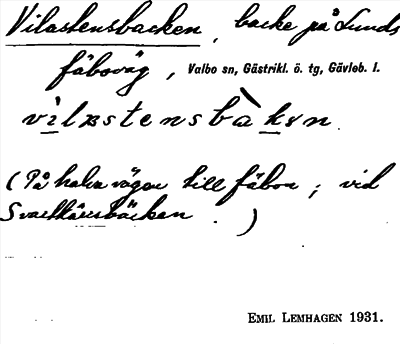 Vilastensbacken, backe på Lunds
fäboväg, Valbo sn, Gästrikl. ö. tg, Gävleb. l.
vilɐstensbàkɘn.
(På halva vägen till fäbon; vid
Svartkärrsbäcken.)
EMIL LEMHAGEN 1931.